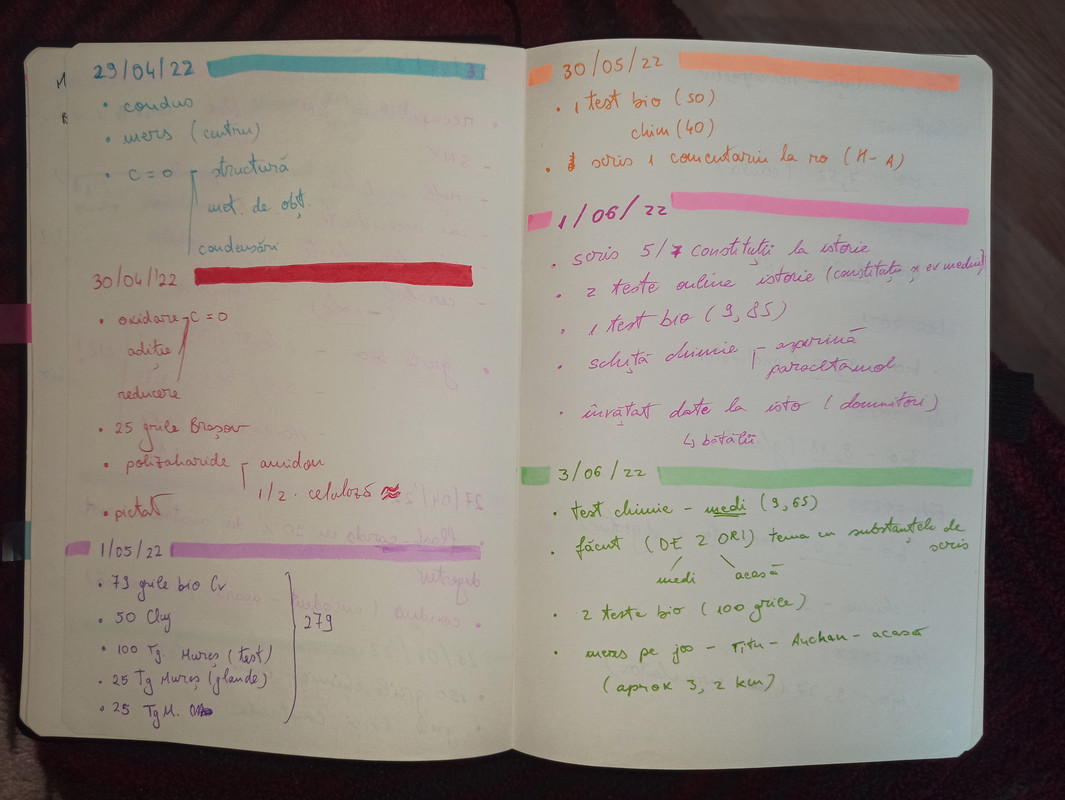 29/04/22
• condus
• mers (centru)
• C = O structură
met. de obț.
condensări
30/04/22
• oxidare C = O
adiție
reducere
• 25 grile Brașov
• polizaharide amidon
1/2 • celuloză
• pictat
1/05/22
• 79 grile bio Cv
• 50 Cluj
• 100 Tg. Mureș (test)
• 25 Tg Mureș (glande)
• 25 Tg M.
279
30/05/22
• 1 test bio (50)
chim (40)
• scris 1 comentariu la ro (M-A)
1/06/22
• scris 5/7 constituții la istorie
• 2 teste online istorie (constituții și ev mediu)
• 1 test bio (9,85)
• schiță chimie aspirină
paracetamol
• învățat date la isto (domnitori)
↳ bătălii
3/06/22
• test chimie - medi (9,65)
• făcut (DE 2 ORI) tema cu substanțele de
scris
medi acasă
• 2 teste bio (100 grile)
• mers pe jos - Titu - Auchan - acasă
(aprox 3,2 km)